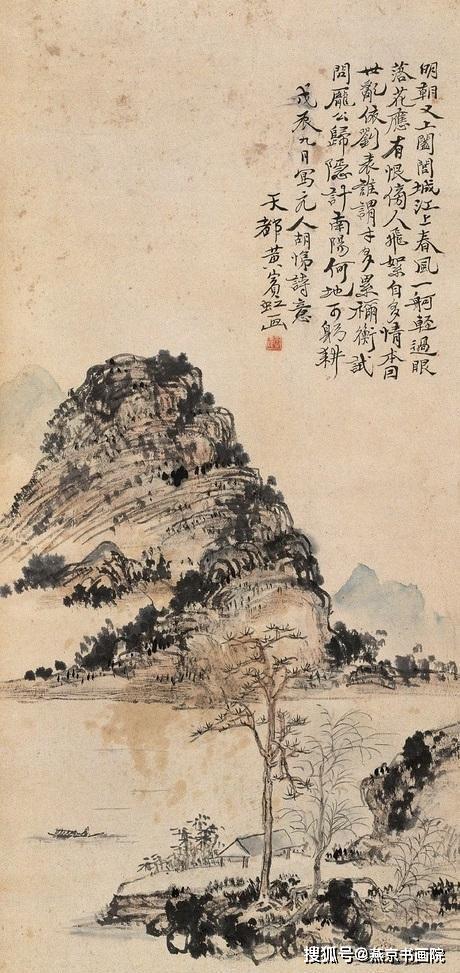 明朝又上闔閭城江上春風一舸輕過眼
落花應有恨傍人飛絮自多情本因
世亂依劉表誰謂才多累禰衡試
問龐公歸隱計南陽何地可躬耕
戊辰九月寫元人胡詩意
天都黃賓虹画
搜狐号@燕京书画院